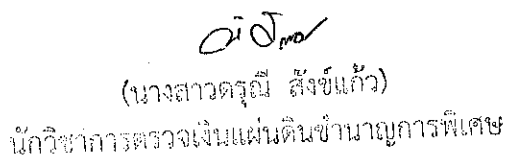 (นางสาวดรุณี สังข์แก้ว)
นักวิชาการตรวจเงินแผ่นดินชำนาญการพิเศษ